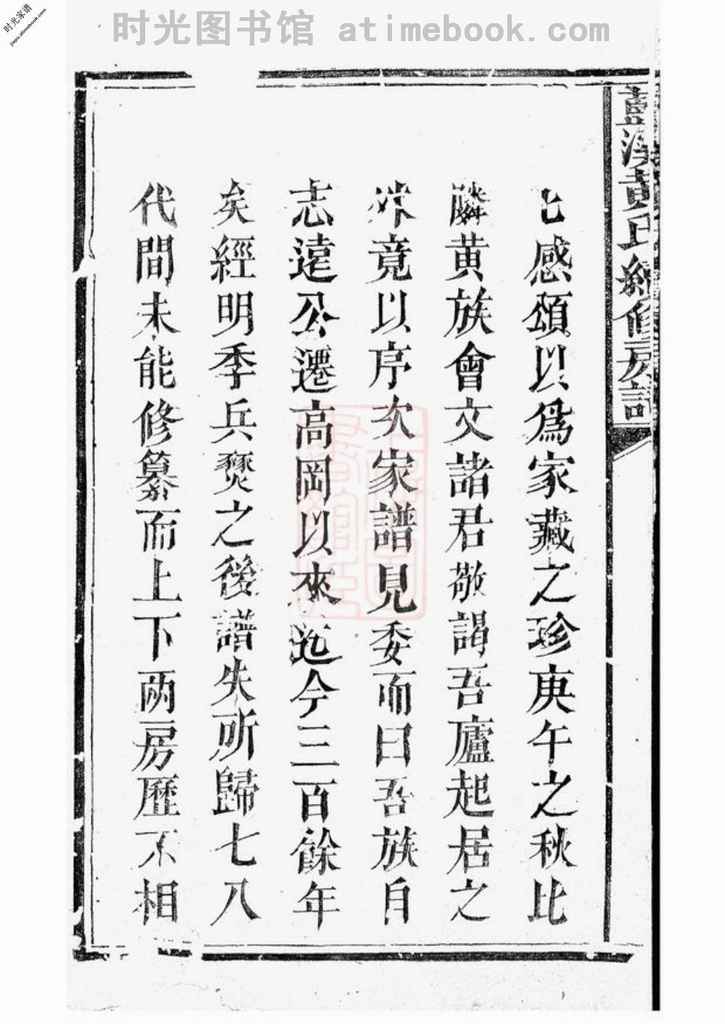 时光图书馆 atimebook.com
时光家谱
黄氏續修房譜
感頌以爲家藏之珍庚午之秋比
隣黄族會文諸君敬謁吾廬起居之
竟以序次家譜見委而曰吾族自
志遠公遷高岡以來迄今三百餘年
矣經明季兵燹之後譜失所歸七八
代間未能修纂而上下兩房歷不相